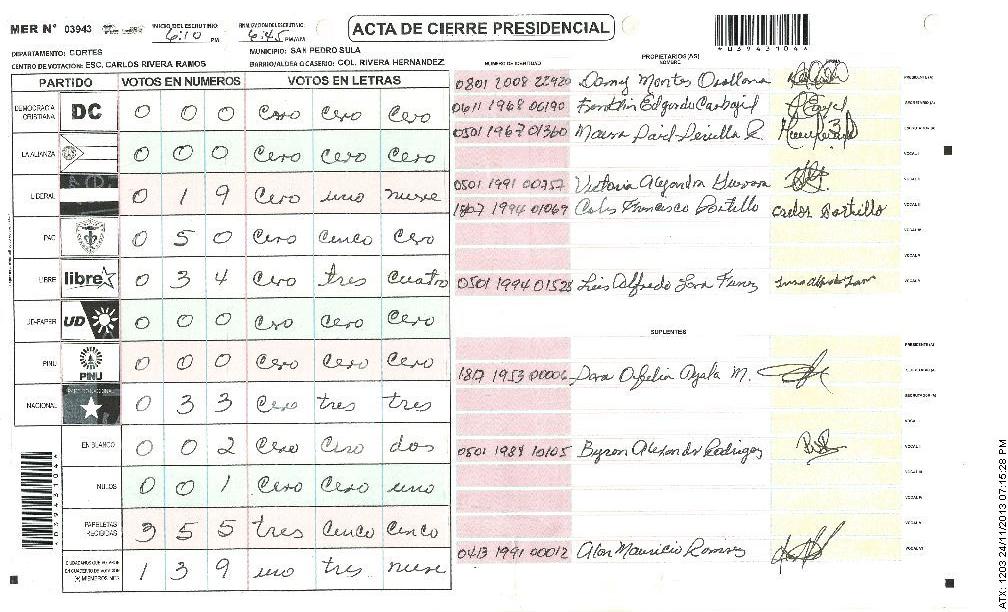 MER N° 03943 INICIO DEL ESCRUTINIO: 6:10 PM FINALIZACION DEL ESCRUTINIO: 6:45 PM/AM
ACTA DE CIERRE PRESIDENCIAL
*039431044*
DEPARTAMENTO: CORTES MUNICIPIO: SAN PEDRO SULA
CENTRO DE VOTACION: ESC. CARLOS RIVERA RAMOS BARRIO/ALDEA O CASERIO: COL. RIVERA HERNANDEZ
PARTIDO VOTOS EN NUMEROS VOTOS EN LETRAS
DEMOCRACIA CRISTIANA DC 0 0 0 Cero Cero Cero
LA ALIANZA 0 0 0 Cero Cero Cero
LIBERAL 0 1 9 Cero uno nueve
PAC 0 5 0 Cero Cinco Cero
LIBRE libre 0 3 4 Cero tres Cuatro
UD-FAPER UD 0 0 0 Cero Cero Cero
PINU PINU 0 0 0 Cero Cero Cero
NACIONAL 0 3 3 Cero tres tres
EN BLANCO 0 0 2 Cero Cero dos
NULOS 0 0 1 Cero Cero uno
PAPELETAS RECIBIDAS 3 5 5 tres Cinco Cinco
1 3 9 uno tres nueve
*039431044*
NUMERO DE IDENTIDAD PROPIETARIOS (AS) NOMBRE
0801 2008 22920 Dony Montes Orellana PRESIDENTE(A)
0611 1968 00190 Franklin Edgardo Carbajal SECRETARIO(A)
0501 1967 01360 ESCRUTADOR(A)
VOCAL I
0501 1991 00757 Victoria Alejandra Guevara
1807 1994 01069 Carlos Francisco Portillo Carlos Portillo
0501 1994 01528 Luis Alfredo Funez
SUPLENTES
PRESIDENTE(A)
1817 1953 00006 Dora Ofelia Ayala M. SECRETARIO(A)
ESCRUTADOR(A)
0501 1984 10105 Byron Alexander Rodriguez
0413 1991 00012 Alan Mauricio Ramirez
ATX: 1203 24/11/2013 07:15:28 PM